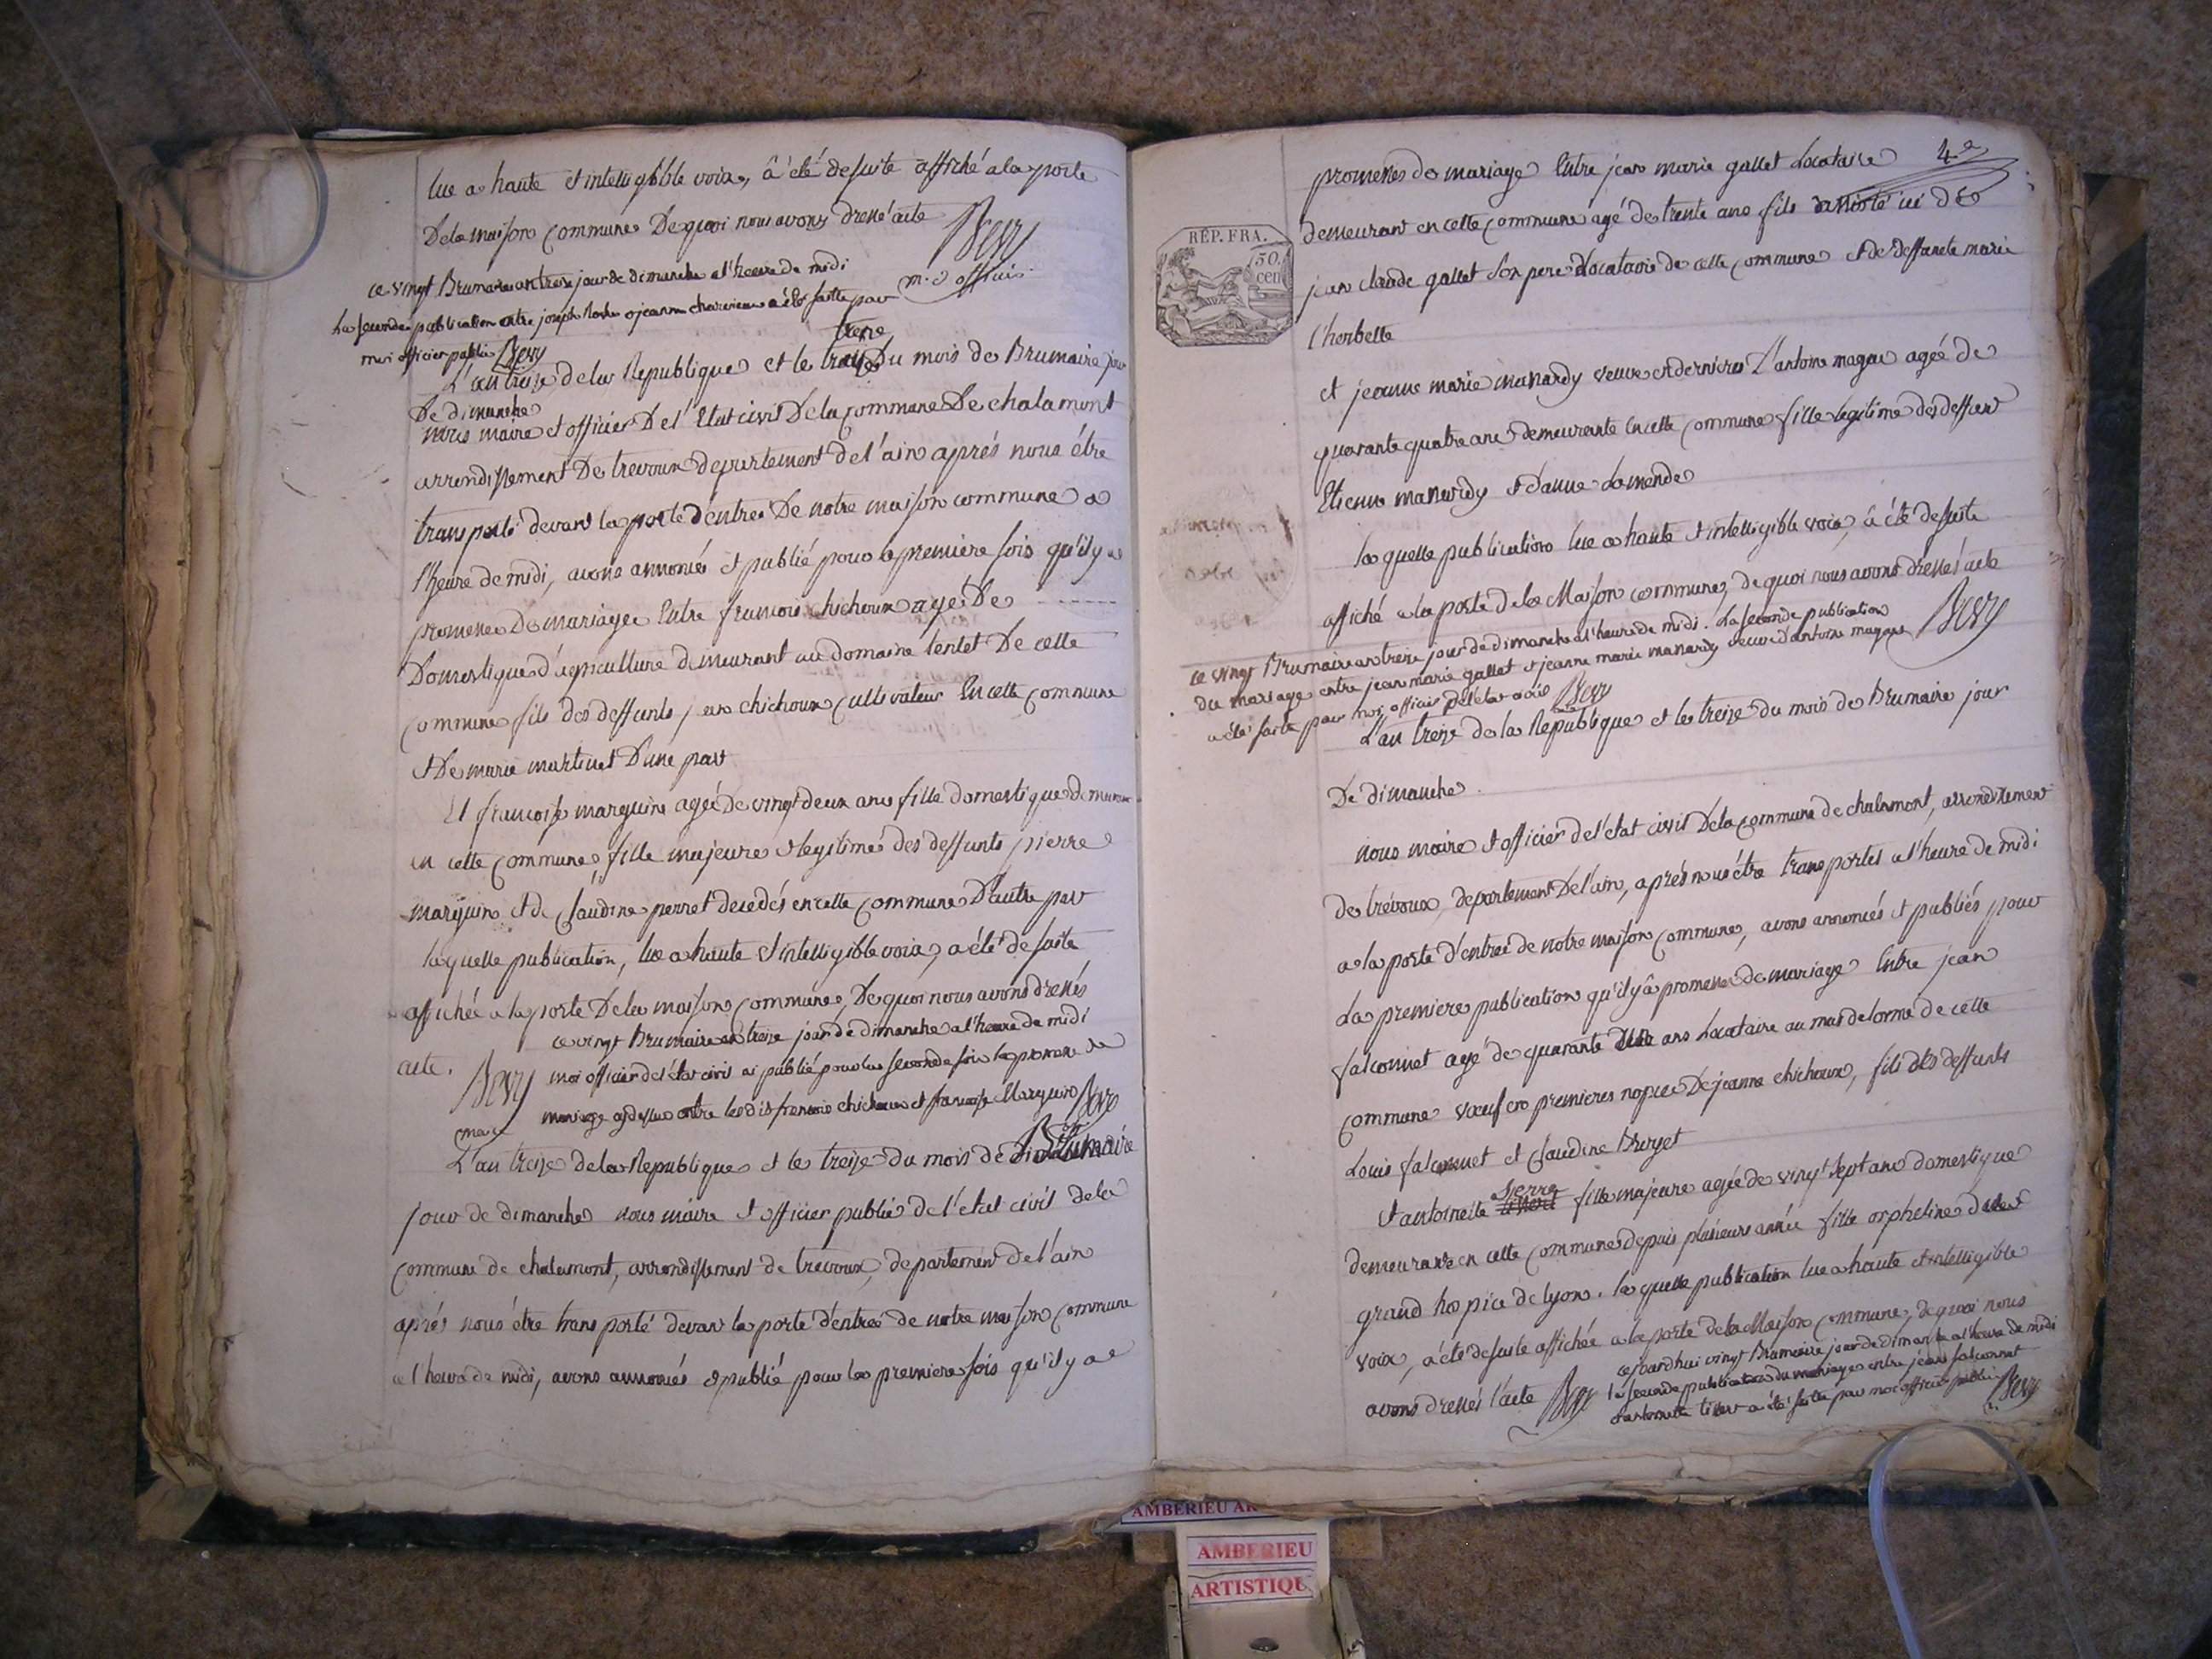 lue a haute et intelligible voix, â été desuite affiché a la porte
De la maison commune De quoi nous avons dressé acte
Bevy
m. officier
ce vingt Brumaire an treize jour de dimanche a l'heure de midi
La seconde publication entre joseph et jeanne a été faitte par
moi officier public Bevy
treize
L'an treize de la Republique et le du mois de Brumaire jour
De dimanche
nous maire et officier De l'Etat civil De la commune De chalamont
arrondissement De trevoux departement de l'ain aprés nous étre
transporté devant la porte d'entrée De notre maison commune a
l'heure de midi, avons annoncés et publié pour la premiere fois qu'il y a
promesse De mariage Entre francois chichoux agé De
Domestique d'agriculture demeurant au domaine tentet De cette
commune fils des deffunts jean chichoux cultivateur En cette commune
et De marie martinet D'une part
Et francoise marguin agée De vingt deux ans fille domestique demeurant
en cette commune, fille majeure et legitime des deffunts pierre
marguin et de Claudine perret decedés en cette commune D'autre part
laquelle publication, lue a haute et intelligible voix, a été de suite
affichée a la porte De la maison commune, De quoi nous avons dressés
acte.
Bevy
maire
ce vingt Brumaire an treize jour de dimanche a l'heure de midi
moi officier de l'état civil ai publié pour la seconde fois la promesse de
mariage cydessus entre lesdits francois chichoux et francoise Marguin Bevy
L'an treize de la Republique et le treize du mois de Brumaire
jour de dimanche nous maire et officier public de l'état civil de la
commune de chalamont, arrondissement de trevoux, departement de l'ain
aprés nous étre transporté devant la porte d'entrée de notre maison commune
a l'heure de midi, avons annoncés et publié pour la premiere fois qu'il y a
4e
promesses de mariage Entre jean marie gallet Locataire
demeurant en cette commune agé de trente ans fils ici de
REP. FRA.
50.
cen
jean claude gallet son pere Locataire de cette commune et de deffuncte marie
l'herbette
et jeanne marie manardy veuve en dernieres D'antoine magau agée de
quarante quatre ans demeurante en cette commune fille legitime des deffunt
Etienne manardy et d'anne Lamende
laquelle publication lue a haute et intelligible voix, â été desuite
affiché a la porte de la Maison commune, de quoi nous avons dressés acte
Bevy
ce vingt Brumaire an treize jour de dimanche a l'heure de midi. La seconde publication
du mariage entre jean marie gallet et jeanne marie manardy veuve d'antoine magau
a été faite par moi officier de l'état civil Bevy
L'an treize de la Republique et le treize du mois de Brumaire jour
De dimanche.
nous maire et officier de l'etat civil De la commune de chalamont, arrondissement
de trévoux, departement De l'ain, aprés nous étre transportés a l'heure de midi
a la porte d'entrée de notre maison commune, avons annoncés et publiés pour
La premiere publication qu'il y â promesse de mariage Entre jean
falconnet agé de quarante ans Locataire au mas de lorme de cette
commune veuf en premieres nopces De jeanne chichoux, fils des deffunts
Louis falconnet et Claudine Bruyet
pierre
et antoinette fille majeure agée de vingt sept ans domestique
demeurant en cette commune depuis plusieurs année fille orpheline du
grand hospice de lyon. laquelle publication lue a haute et intelligible
voix, a été desuite affichée a la porte de la Maison commune, de quoi nous
avons dressés l'acte Bevy
cejourdhui vingt Brumaire jour de dimanche a l'heure de midi
la seconde publication du mariage entre jean falconnet
et antoinette a été faite par moi officier public
Bevy
AMBERIEU AR
AMBERIEU
ARTISTIQU